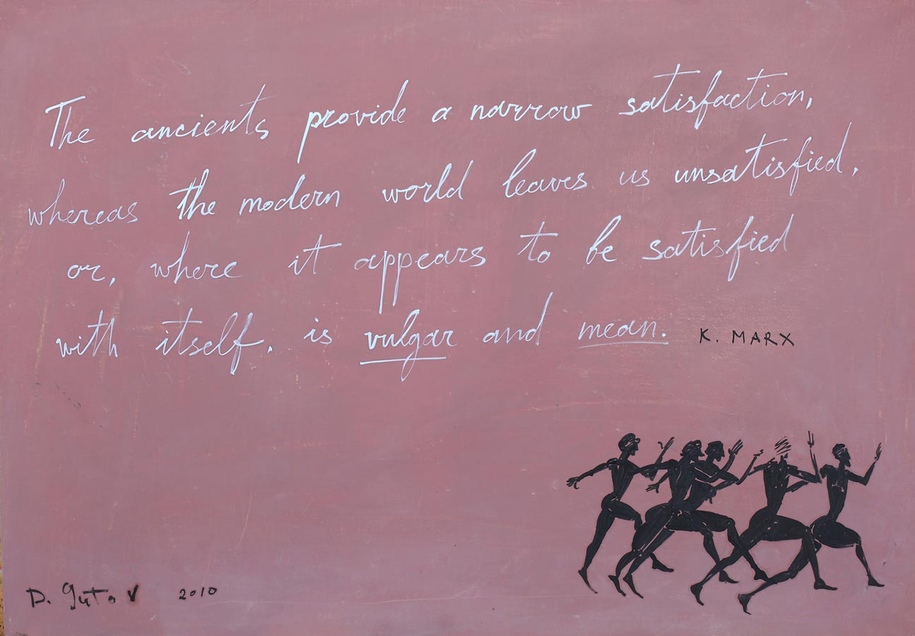 The ancients provide a narrow satisfaction,
whereas the modern world leaves us unsatisfied,
or, where it appears to be satisfied
with itself, is vulgar and mean. K. MARX
D. Gutov 2010